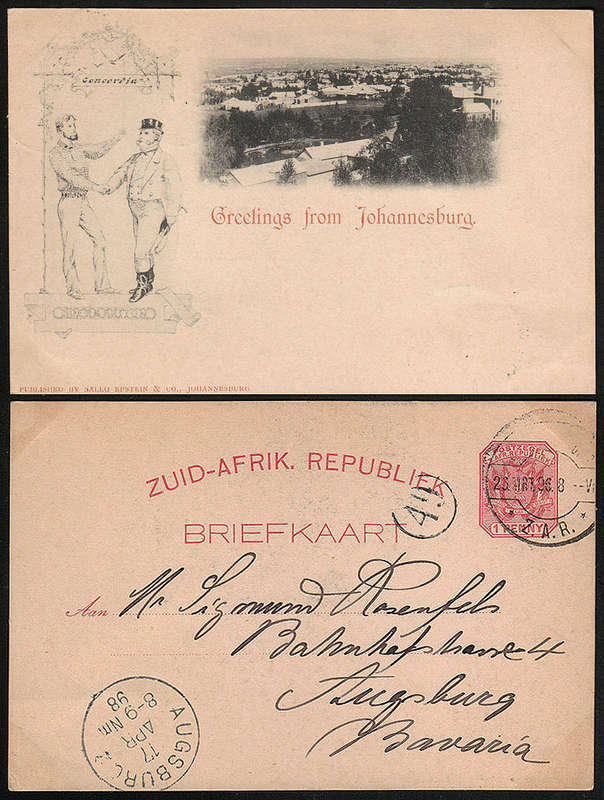 Concordia
Greetings from Johannesburg.
PUBLISHED BY SALLO EPSTEIN & CO., JOHANNESBURG.
ZUID-AFRIK. REPUBLIEK
POSTZEGEL
1 PENNY
Z.A.R.
BRIEFKAART
49
Aan Mr Sigmund Rosenfels
Bahnhofstrasse 4
Augsburg
Bavaria
AUGSBURG 2
17
APR
8-9 Nm
98